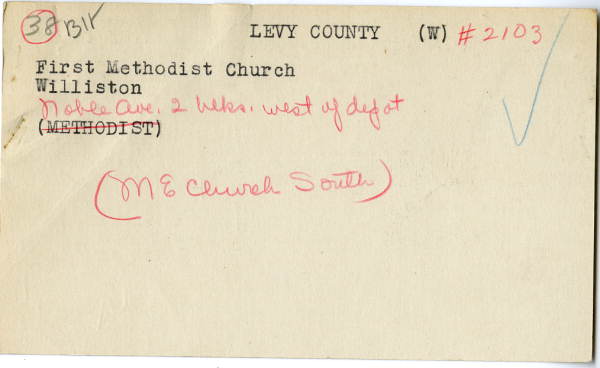 38 LEVY COUNTY (W) #2103
First Methodist Church
Williston
Noble Ave. 2 blks. west of depot
(METHODIST)
(M E Church South)